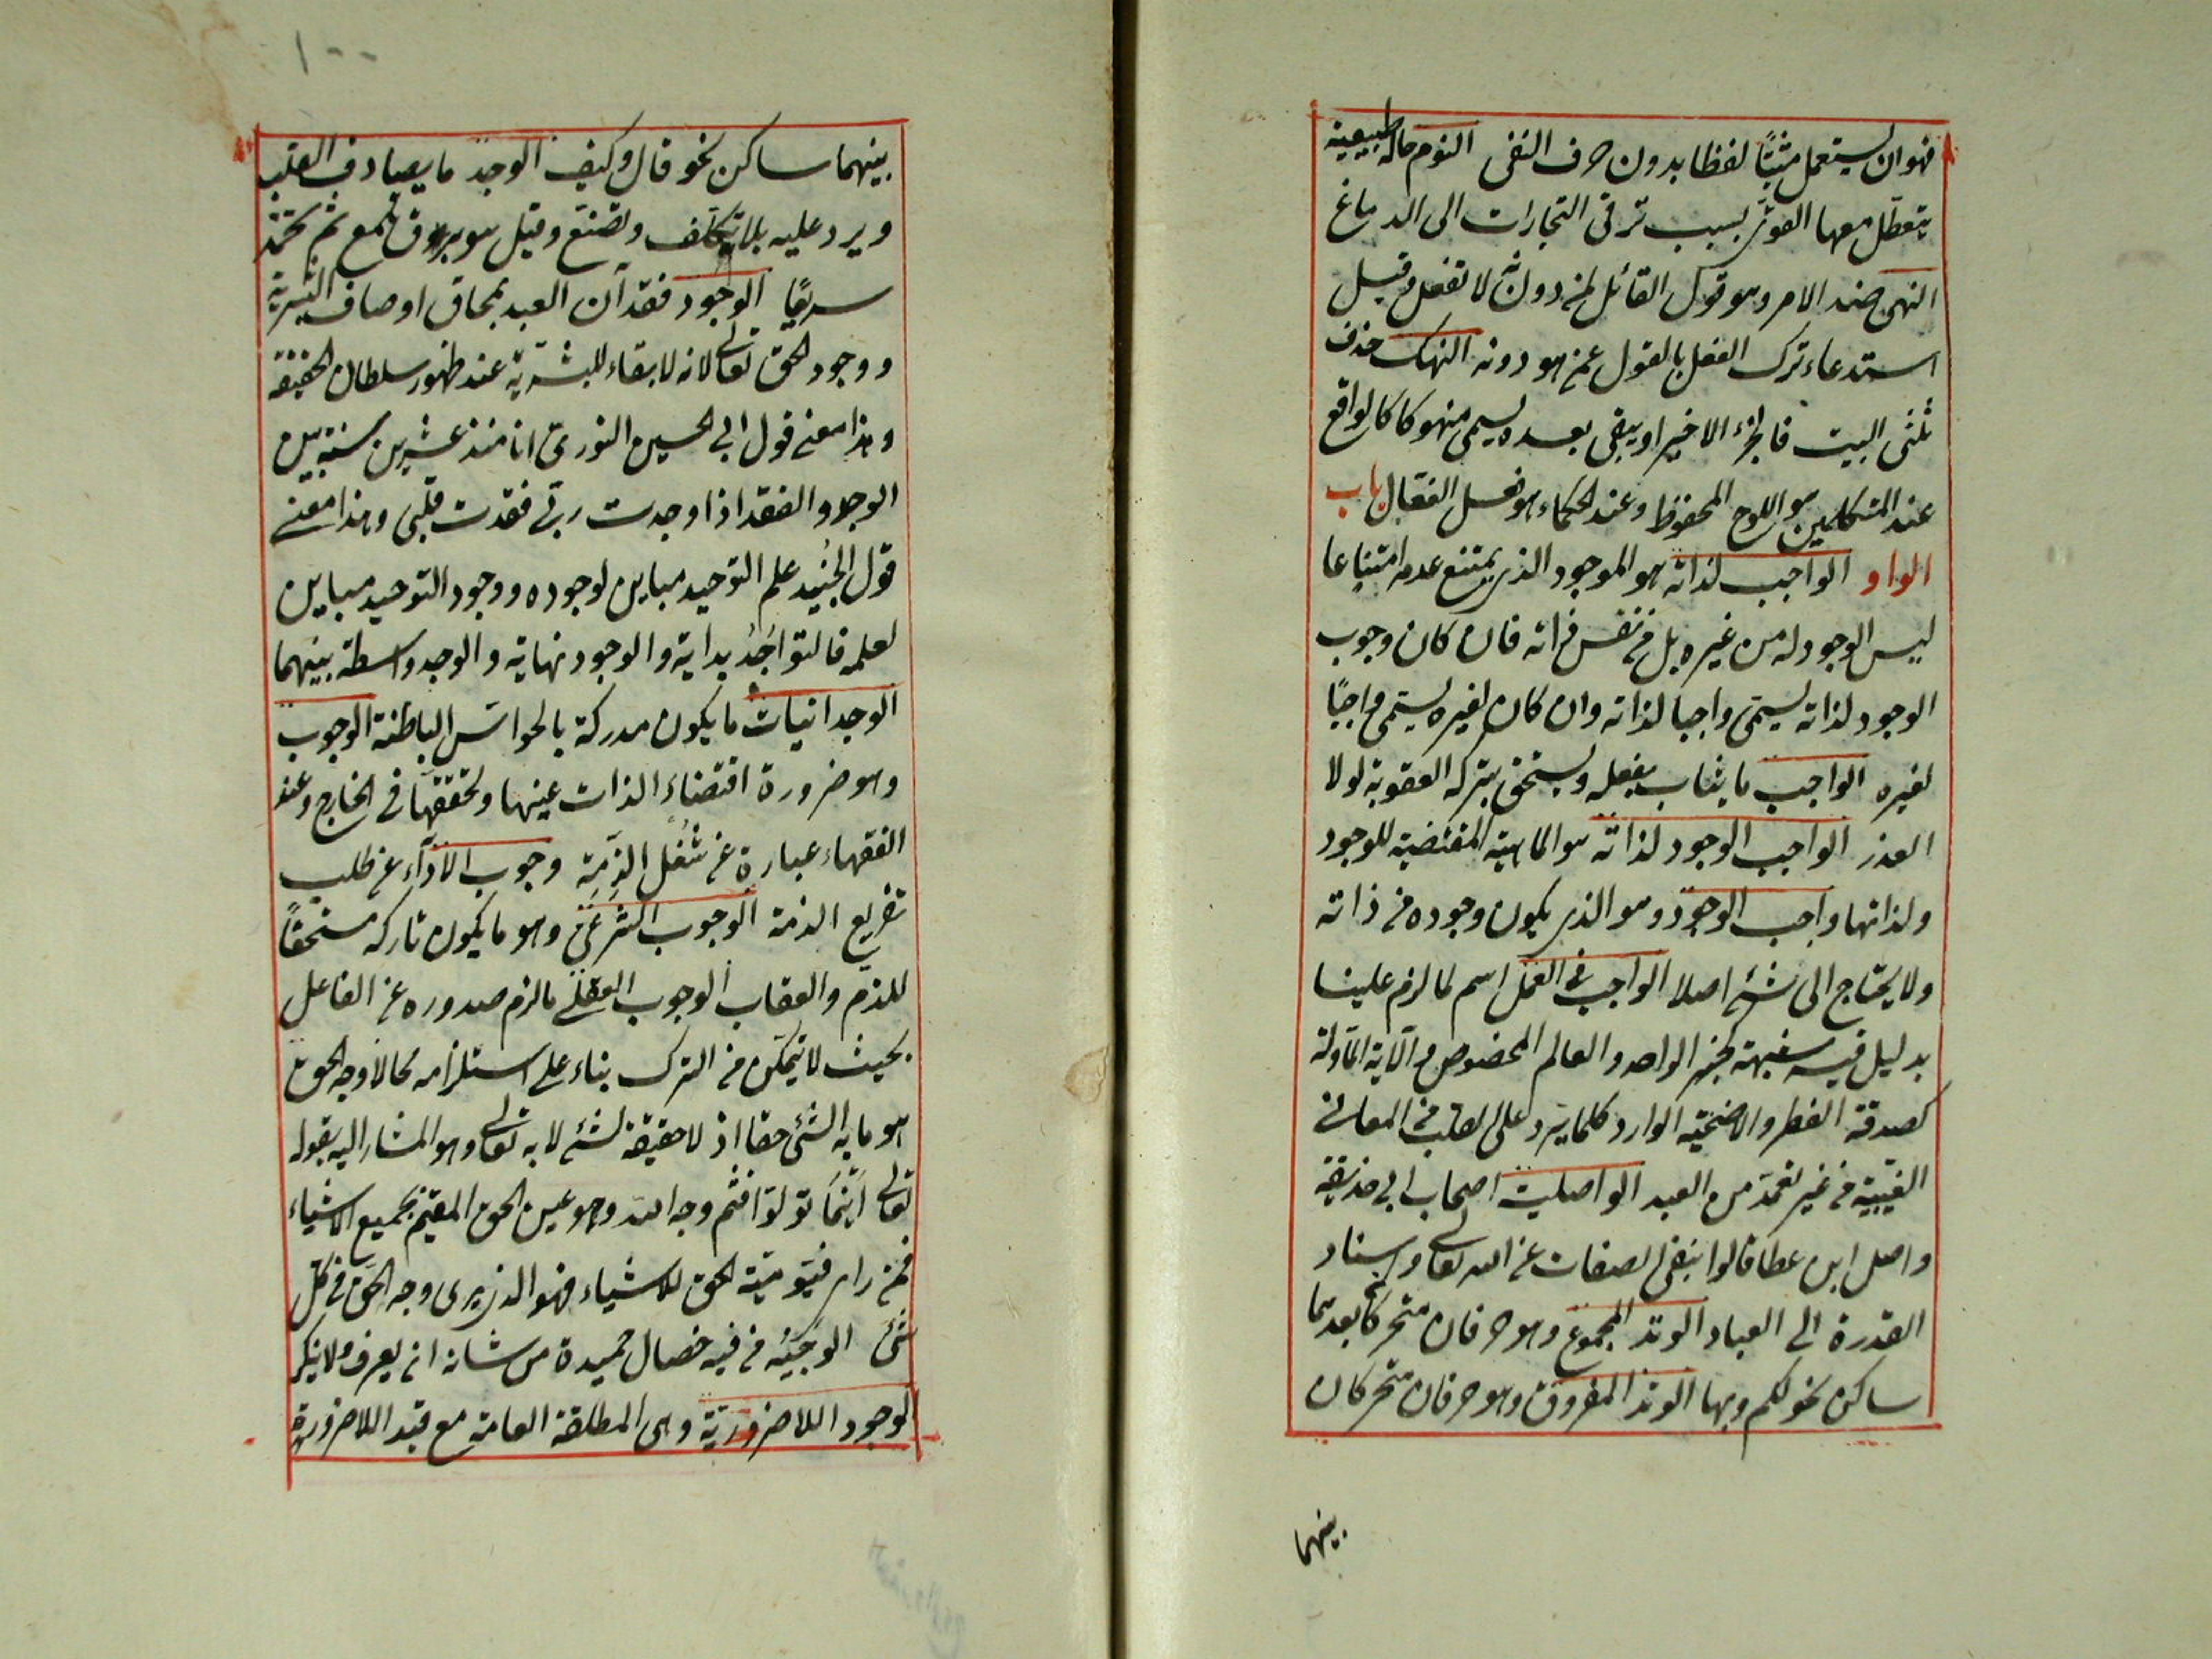 فهو ان يستعمل مثبتًا لفظا بدون حرف النفى النوم حالة طبيعية
يتعطّل معها القوى بسبب ترقى البخارات الى الدماغ
النهى ضد الامر وهو قول القائل لمن دونه لا تفعل وقيل
استدعاء ترك الفعل بالقول عمن هو دونه النهك حذف
ثلثى البيت فالجزء الاخير او يبقى بعده يسمى منهوكا كالواقع
عند المتكلمين هو اللوح المحفوظ وعند الحكماء هو الفعال باب
الواو الواجب لذاته هو الموجود الذى يمتنع عدمه امتناعا
ليس الوجود له من غيره بل من نفس ذاته فان كان وجوب
الوجود لذاته يسمّى واجبا لذاته وان كان لغيره يسمّى واجبًا
لغيره الواجب ما يثاب بفعله ويستحق بتركه العقوبة لولا
العذر الواجب الوجود لذاته هو الماهية المقتضية للوجود
ولذاتها واجب الوجود وهو الذى يكون وجوده من ذاته
ولا يحتاج الى شئ اصلا الواجب فى العمل اسم لما لزم علينا
بدليل فيه شبهة كخبر الواحد والعالم المخصوص والآية المأولة
كصدقة الفطر والاضحيّة الوارد كلما يرد على القلب من المعانى
الغيبية من غير تعمّد من العبد الواصلية اصحاب ابى حذيفة
واصل ابن عطا قالوا بنفى الصفات عن الله تعالى واسناد
القدرة الى العباد الوتد المجموع وهو حرفان متحركان بعدهما
ساكن نحو لكم وبها الوتد المفروق وهو حرفان متحركان
بينهما
١٠٠
بينهما ساكن نحو قال وكيف الوجد ما يصادف القلب
ويرد عليه بلا تكلف وتصنّع وقيل هو بروق تلمع ثم تخمد
سريعًا الوجود فقدان العبد بمحاق اوصاف البشرية
ووجود الحق تعالى لانه لا بقاء للبشريّة عند ظهور سلطان الحقيقة
وهذا معنى قول ابى الحسين النورى انا منذ عشرين سنة بين
الوجود والفقد اذا وجدت ربّى فقدت قلبى وهذا معنى
قول الجُنَيد علم التوحيد مباين لوجوده ووجود التوحيد مباين
لعلمه فالتواجُدُ بداية والوجود نهاية والوجد واسطة بينهما
الوجدانيات ما يكون مدركة بالحواسّ الباطنة الوجوب
وهو ضرورة اقتضاء الذات عينها وتحققها فى الخارج وعند
الفقهاء عبارة عن شُغْل الذِمّة وجوب الاداء عن طلب
تفريغ الذمة الوجوب الشرعىّ وهو ما يكون تاركه مستحقًا
للذمّ والعقاب الوجوب العقلى ما لزم صدوره عن الفاعل
بحيث لا يتمكّن من الترك بناء على استلزامه محالا وجه الحق
هو ما به الشئ حقا اذ لا حقيقة لشئ الا به تعالى وهو المشار اليه بقوله
تعالى اَيْنَمَا تولّوا فثَمّ وجه الله وهو عين الحق المقيم بجميع الاشياء
فمن راى قيّوميّة الحق للاشياء فهو الذى يرى وجه الحقّ فى كلّ
شئ الوجيه من فيه خصال حميدة من شانه ان يعرف ولا ينكر
الوجود اللاضروريّة وهى المطلقة العامة مع قيد اللاضرورة